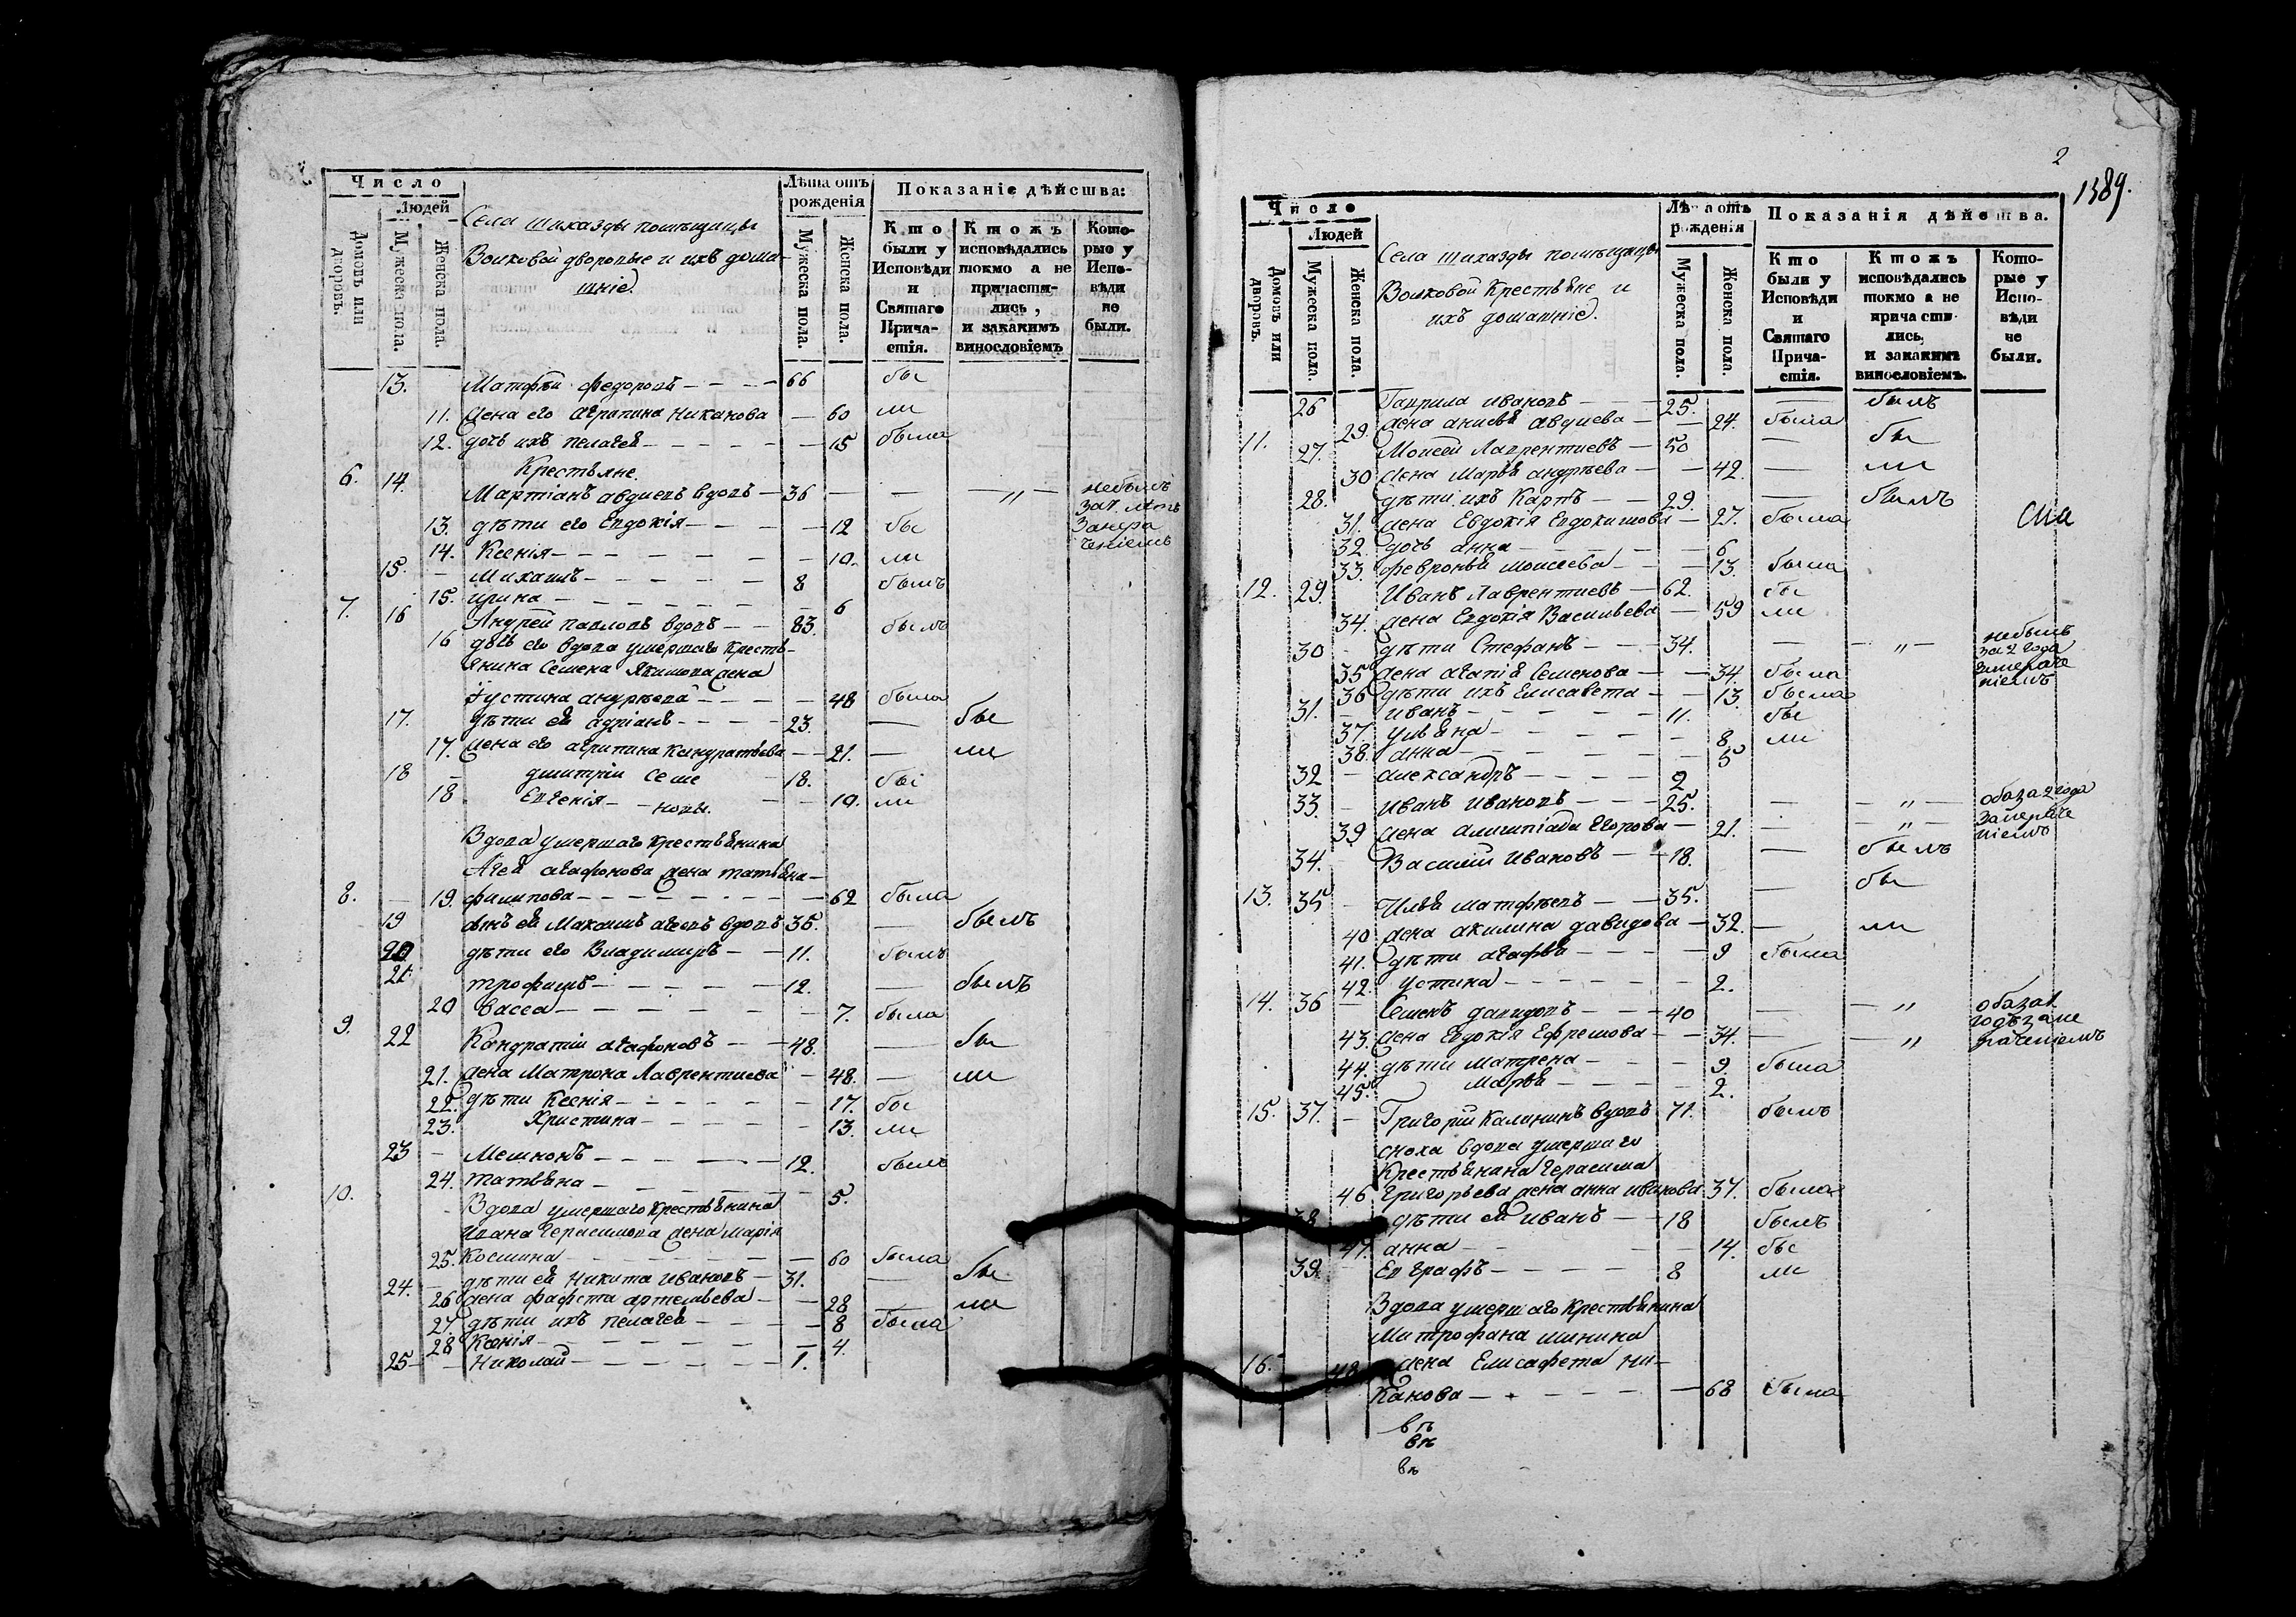 Число
Людей
Домовъ или дворовъ.
Мужеска пола.
Женска пола.
Села Шиказды помѣщицы
Волковой дворовые и ихъ дома-
шніе.
Лѣта отъ рожденія
Мужеска пола.
Женска пола.
Показаніе дѣйства:
Кто были у Исповѣди и Святаго Причастія.
Ктожъ исповѣдались токмо а не причастились, и закакимъ винословіемъ
Которые у Исповѣди не были.
13. Матфѣй Федоровъ — 66 бы
11. жена его Агрипина Никанова — 60 ли
12. дочь ихъ Пелагея — 15 была
Крестьяне.
6. 14. Мартіанъ Авдиевъ вдовъ — 36 — — „ — небылъ
13. дѣти его Евдокія — 12 бы
14. Ксенія — 10. ли
15. Михаилъ — 8 былъ
15. Ирина — 6
7. 16 Андрей Павловъ вдовъ — 83. былъ
16 дочь его вдова умершаго кресть-
янина Семена Якимова жена
Іустина Андреева — 48 была
17. дѣти ея Адріанъ — 23. — бы
17. жена его Агрипина Кандратьева — 21. — ли
18 Дмитрій Семе 18. бы
18 Евгенія — новы. — 10. ли
Вдова умершаго крестьянина
Агея Агафонова жена Татьяна
8. 19. Филипова — 62 была
19 сынъ ея Максимъ Агеевъ вдовъ 35. — былъ
20 дѣти его Владимиръ — 11. былъ
21 Трофимъ — 12. — былъ
20 Васса — 7. была
9. 22 Кондратій Агафоновъ — 48. — бы
21. жена Матрона Лаврентиева — 48. — ли
22. дѣти Ксенія — 17. бы
23. Христина — 13. ли
23 Мемнонъ — 12. былъ
24. Татьяна — 5.
10. Вдова умершаго крестьянина
Ивана Герасимова жена Марія
25. Космина — 60 была
24. дѣти ея Никита Ивановъ — 31. — бы
26 жена Фафста Артемьева — 28 — ли
27. дѣти ихъ Пелагея — 8 была
28 Ксенія — 4.
25 Николай — 1.
2
1389.
Число
Людей
Домовъ или дворовъ.
Мужеска пола.
Женска пола.
Села Шиказды помѣщицы
Волковой Крестьяне и
ихъ домашніе.
Лѣта отъ рожденія
Мужеска пола.
Женска пола.
Показанія дѣйства.
Кто были у Исповѣди и Святаго Причастія.
Ктожъ исповѣдались токмо а не причастились, и закакимъ винословіемъ.
Которые у Исповѣди не были.
26 Гаврила Ивановъ — 25. — былъ
29. жена Анисья Авдиева — 24. была
11. 27. Моисей Лаврентиевъ — 50 — бы
30 жена Марья Андреева — 42. — ли
28. дѣти ихъ Карпъ — 29. — былъ
31. жена Евдокія Евдокимова — 27. была
32. дочь Анна — 6
33. Февронья Моисеева — 13. была
12. 29. Иванъ Лаврентиевъ — 62. бы
34. жена Евдокія Васильева — 59 ли
30 дѣти Стефанъ — 34. — — „ — небылъ за 2 года
35 жена Агапія Семенова — 34. была
36 дѣти ихъ Елисавета — 13. была
31. Иванъ — 11. бы
37. Ульяна — 8. ли
38. Анна — 5
32 Александръ — 2
33. Иванъ Ивановъ — 25. — — „ — оба за 2 года
39 жена Алимпіада Егорова — 21. — — „ —
34. Василій Ивановъ — 18. — былъ
13. 35 Илья Матфѣевъ — 35. — бы
40 жена Акилина Давидова — 32. — ли
41. дѣти Агафья — 9 была
42. Устина — 2.
14. 36 Семенъ Давидовъ — 40 — — „ оба за 1
43. жена Евдокія Ефремова — 34. — — „
44. дѣти Матрена — 9. была
45. Марья — 2.
15. 37. Григорій Калининъ вдовъ 71. былъ
сноха вдова умершаго
крестьянина Герасима
46. Григорьева жена Анна Иванова 37. была
38 дѣти ея Иванъ — 18 былъ
47. Анна — 14. бы
39 Евграфъ — 8 ли
Вдова умершаго крестьянина
Митрофана Минина
16. 48 жена Елисафета Ни-
канова — 68 была